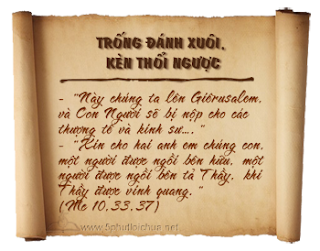 TRỐNG ĐÁNH XUÔI,
KÈN THỔI NGƯỢC
- "Này chúng ta lên Giêrusalem,
và Con Người sẽ bị nộp cho các
thượng tế và kinh sư...."
- "Xin cho hai anh em chúng con,
một người được ngồi bên hữu, một
người được ngồi bên tả Thầy, khi
Thầy được vinh quang."
(Mc 10,33.37)
www.5phutloichua.net